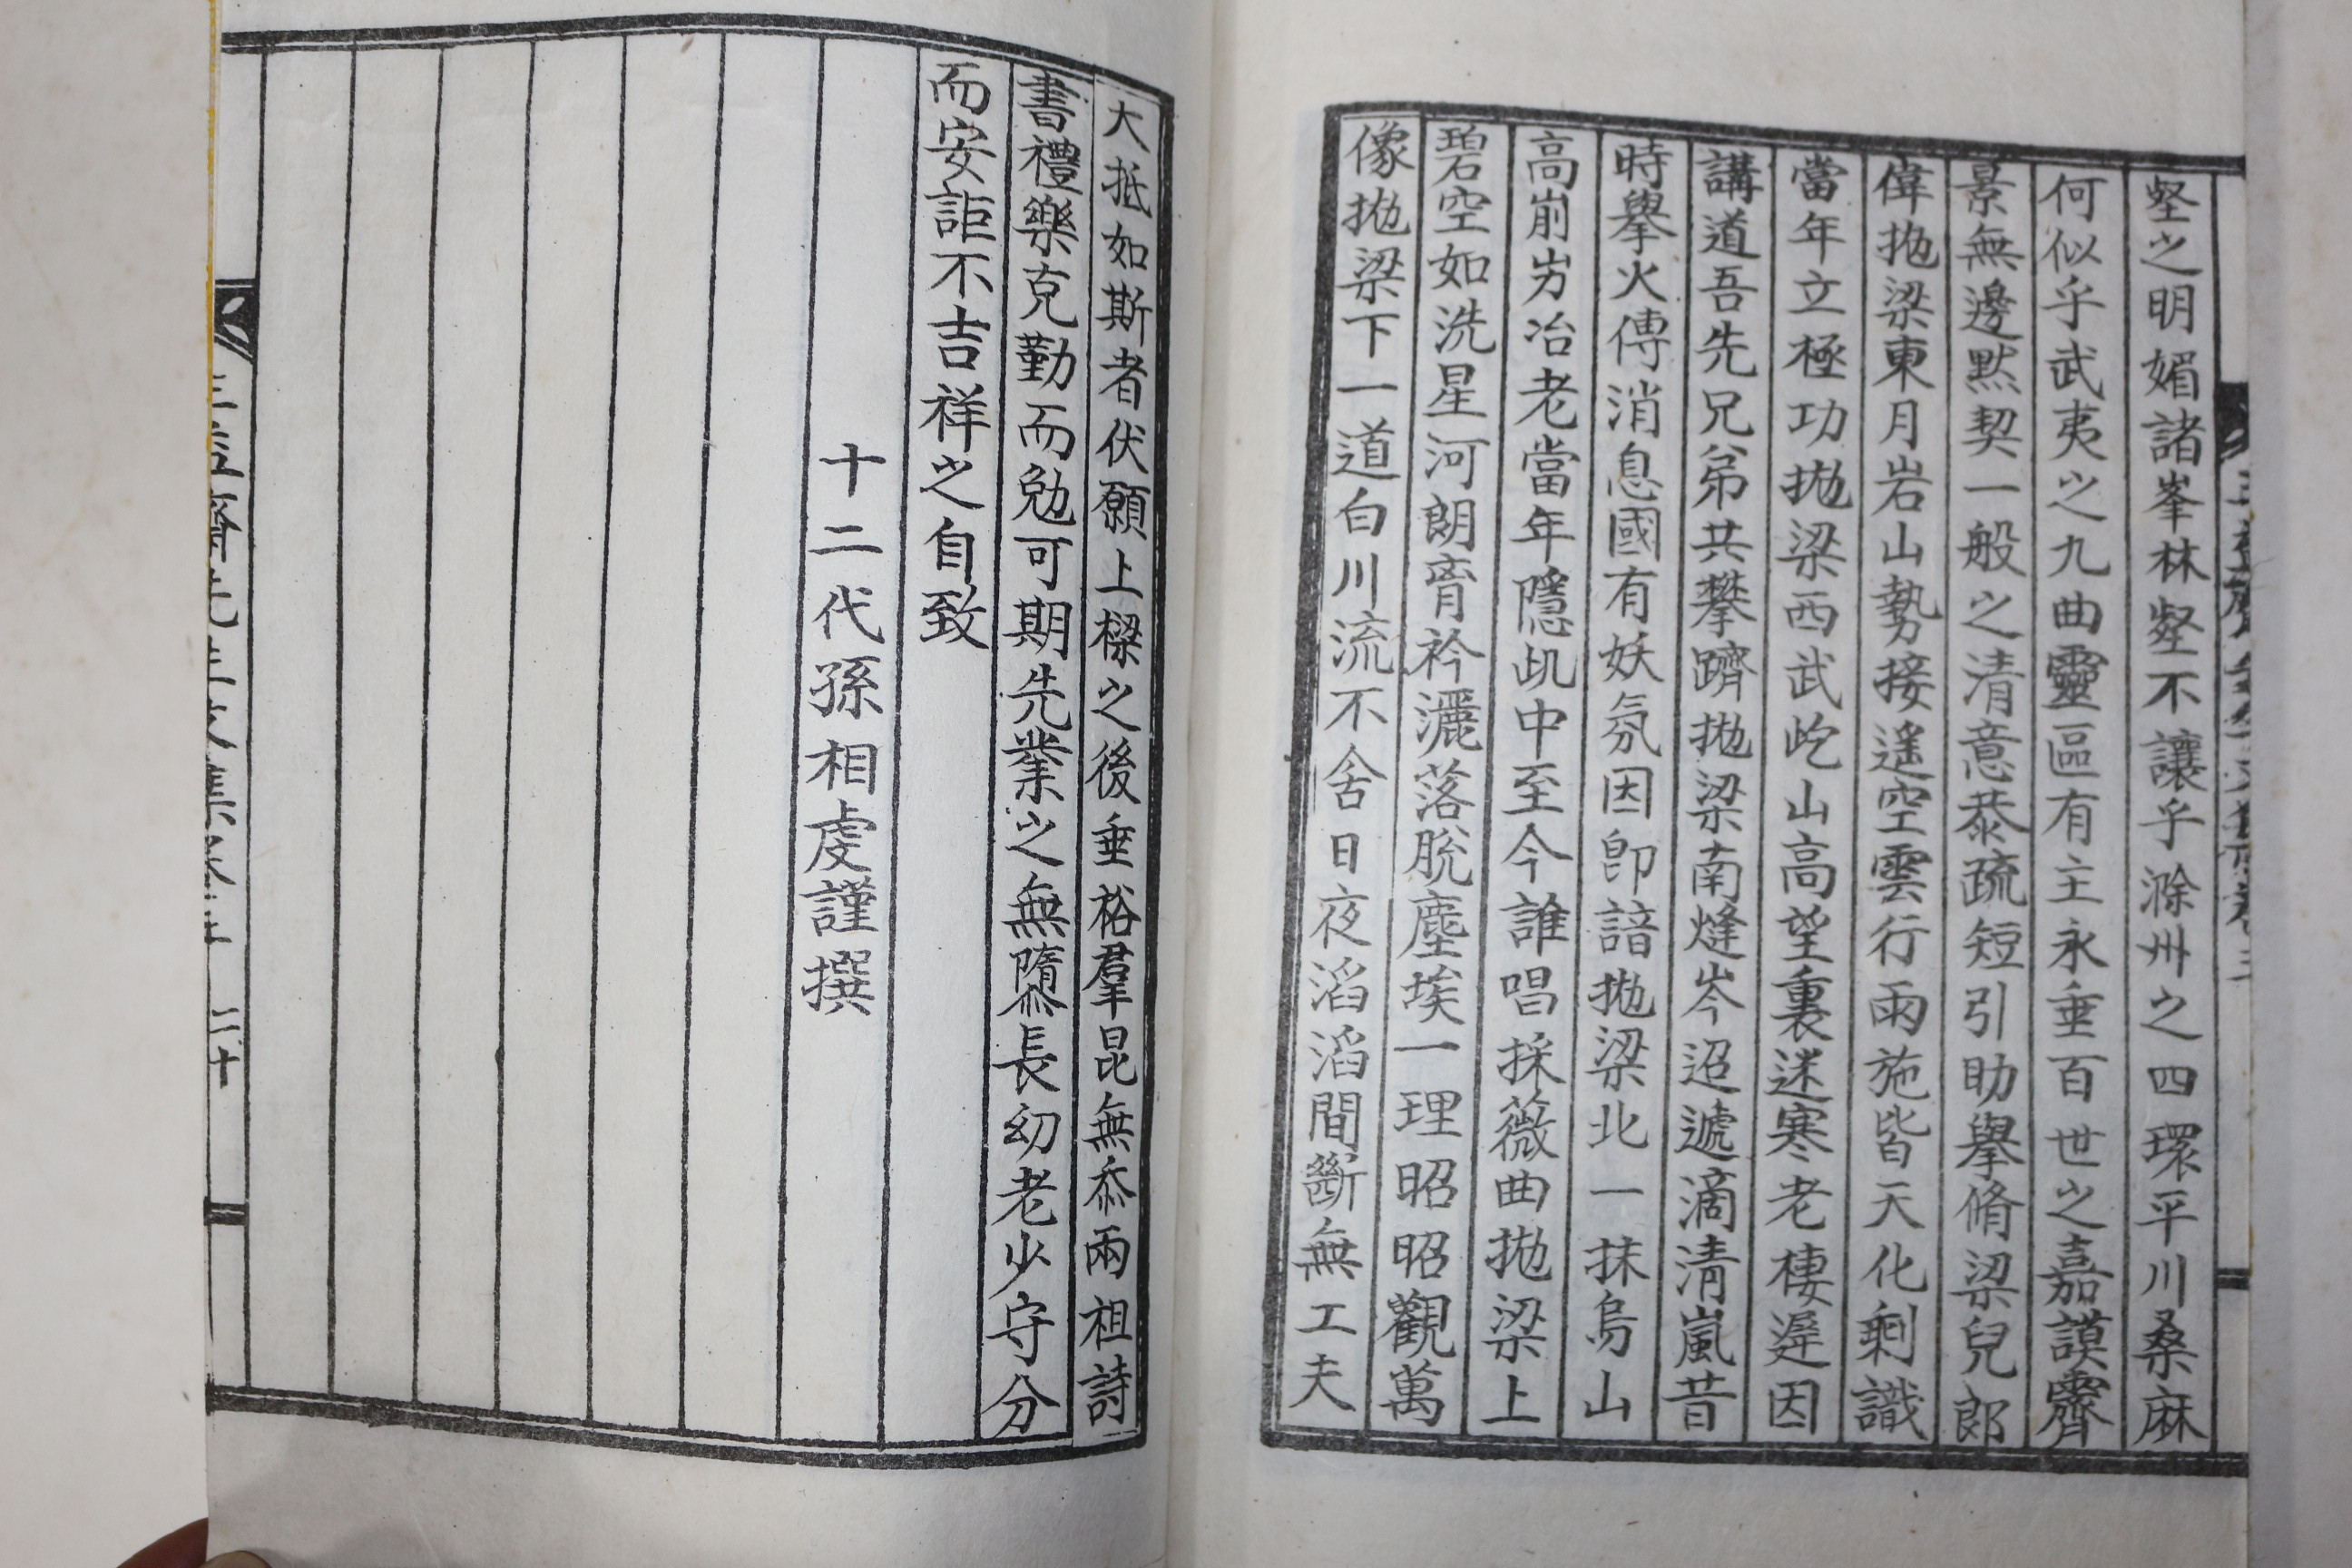 壑之明媚諸峯林壑不讓乎滁州之四環平川桑麻
何似乎武夷之九曲靈區有主永垂百世之嘉謨霽
景無邊默契一般之清意恭疏短引助擧脩梁兒郞
偉拋梁東月岩山勢接遙空雲行雨施皆天化剩識
當年立極功拋梁西武屹山高望裏迷寒老棲遲因
講道吾先兄弟共攀躋拋梁南烽岑迢遞滴清嵐昔
時擧火傳消息國有妖氛因卽諳拋梁北一抹烏山
高崱屴冶老當年隱此中至今誰唱採薇曲拋梁上
碧空如洗星河朗胷衿灑落脫塵埃一理昭昭觀萬
像拋梁下一道白川流不舍日夜滔滔間斷無工夫
大抵如斯者伏願上樑之後垂裕羣昆無忝兩祖詩
書禮樂克勤而勉可期先業之無隳長幼老少守分
而安詎不吉祥之自致
十二代孫相虔謹撰
先生文集卷
二十